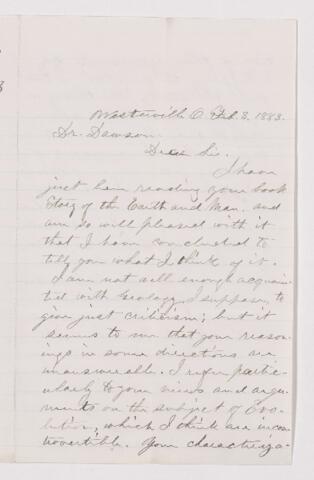 Westerville O. Feb 3. 1883.
Dr. Dawson.
Dear Sir.
I have
just been reading your book
Story of the Earth and Man. and
am so well pleased with it
that I have concluded to
tell you what I think of it.
I am not well enough acquain-
ted with Geology I suppose, to
give just criticism; but it
seems to me that your reason-
ings in some directions are
unanswerable. I refer partic-
ularly to your views and argu-
ments on the subject of Evo-
lution, which I think are incon-
trovertible. Your characteriza-